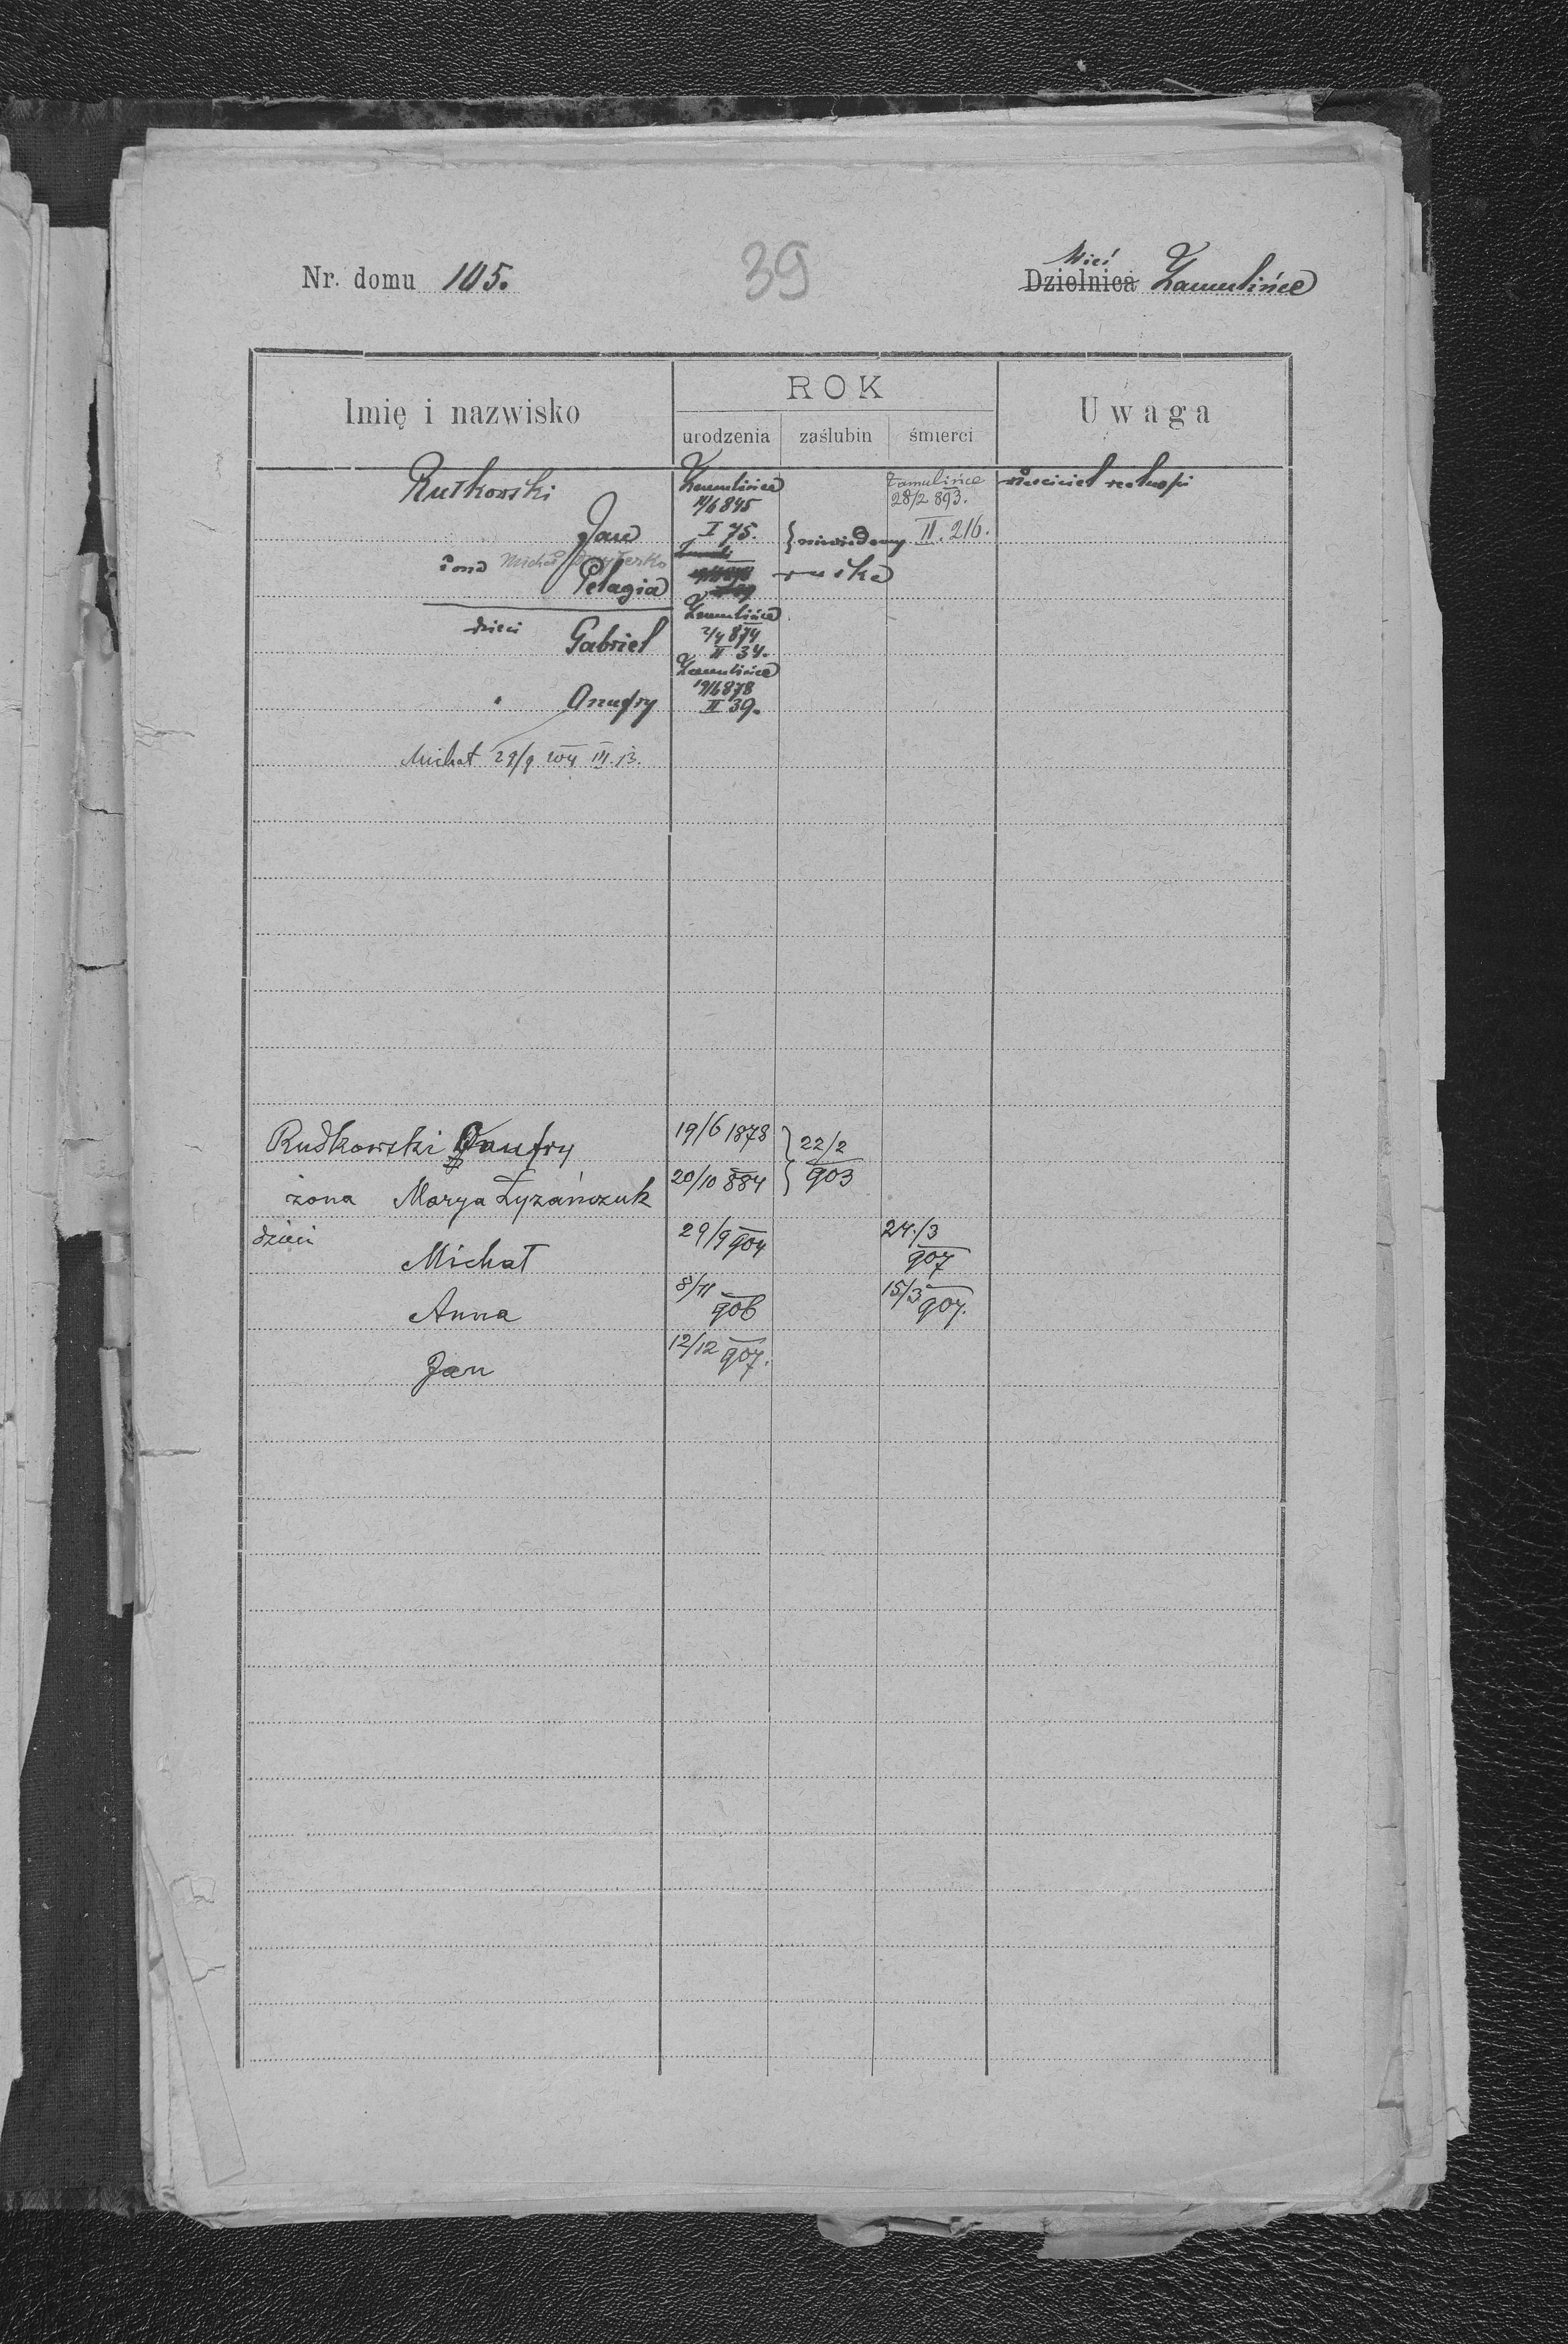 Nr. domu 105.
39
Wieś
Dzielnica Zamulińce
Imię i nazwisko
ROK
urodzenia zaślubin śmierci
Uwaga
Rutkowski
Jan
Zamulińce
845
I 75.
niewiadomy
Zamulińce
28/2 893.
II. 216.
żona Michał
Pelagia
ruska
dzieci Gabriel
Zamulińce
2/4 874
II 34.
" Onufry
Zamulińce
19/6 878
II 39.
Michał 29/9 904 III. 13.
Rudkowski Onufry 19/6 1878 22/2
żona Marya Łyzańczuk 20/10 884 903
dzieci
Michał 29/9 904 24/3 907
Anna 8/11 906 15/3 907.
Jan 12/12 907.